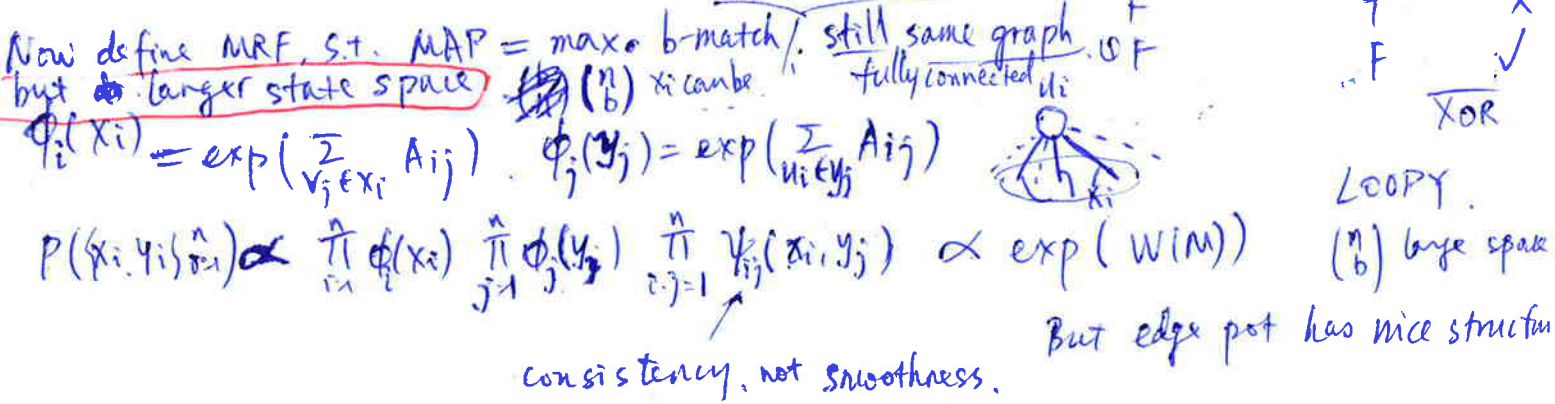 Now define MRF, s.t. MAP = max. b-match / . still same graph
but larger state space (n b) xi can be fully connected
ui
F
F
T
F ✓
XOR
ϕi(xi) = exp(Σ vj∈xi Aij) . ϕj(yj) = exp(Σ ui∈yj Aij)
xi
LOOPY.
P({xi, yi}ⁿi=1) ∝ ∏ⁿi=1 ϕi(xi) ∏ⁿj=1 ϕj(yj) ∏ⁿi,j=1 ψij(xi, yj) ∝ exp(W(M)) (n b) large space
But edge pot has nice structur
consistency, not smoothness.